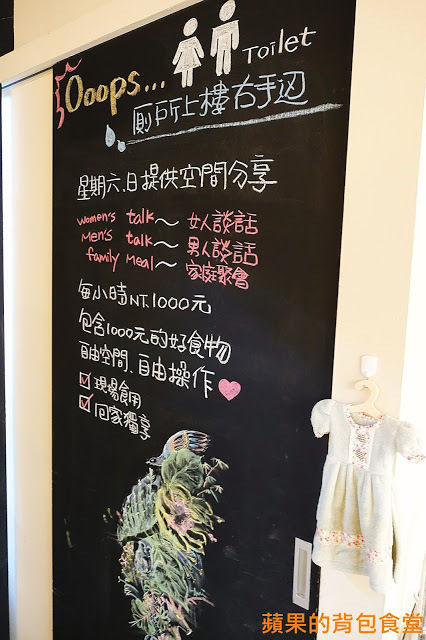 Ooops...
Toilet
廁所上樓右手边
星期六.日提供空間分享
women's talk～女人談話
Men's talk～男人談話
family meal～家庭聚會
每小時NT.1000元
包含1000元的好食物
自由空間.自由操作
現場食用
回家獨享
蘋果的背包食堂